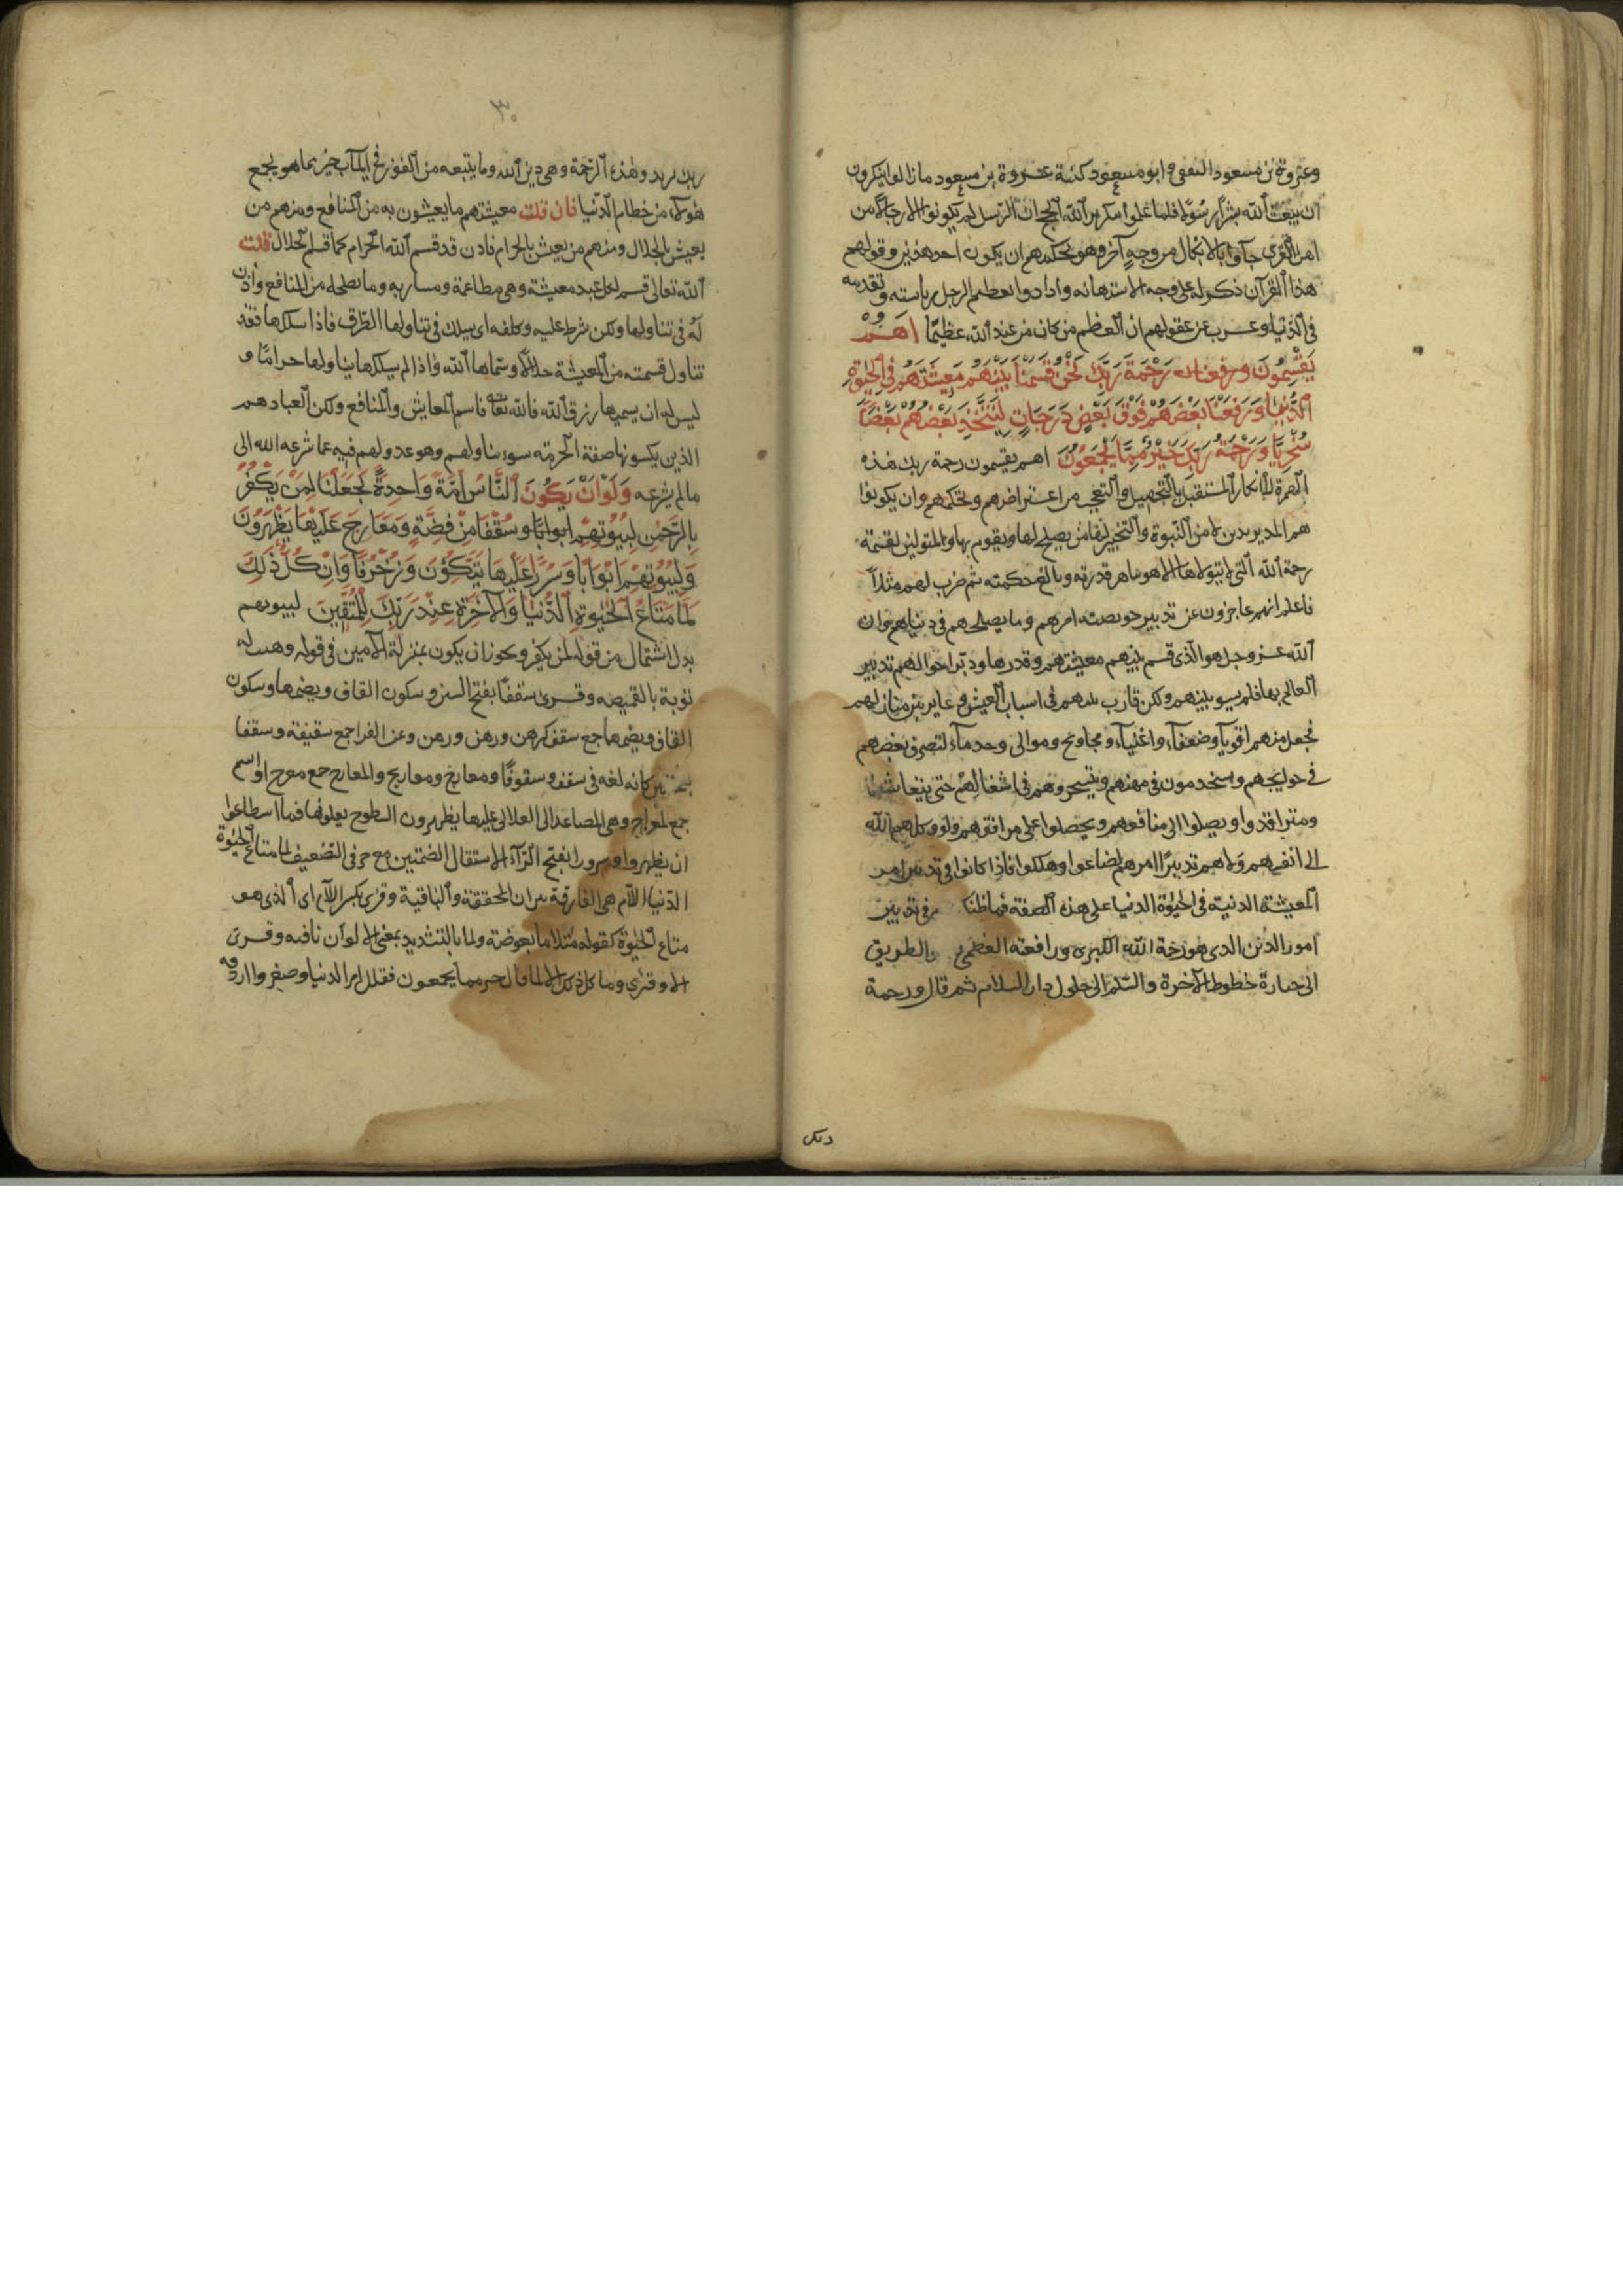 وعروة بن مسعود الثقفي و ابو مسعود كنية عروة بن مسعود ما زالوا ينكرون
ان يبعث الله بشرا رسولا فلما علموا بتكرير الله الحجج ان الرسل لم يكونوا الا رجالا من
اهل القرى جاؤا بالانكار من وجه آخر وهو تحكمهم ان يكون احد هذين وقولهم
هذا القرآن ذكر له على وجه الاستهانة وارادوا بعظم الرجل رياسته وتقدمه
في الدنيا وعزب عن عقولهم ان العظيم من كان من عند الله عظيما اهم
يقسمون رحمة ربك نحن قسمنا بينهم معيشتهم في الحيوة
الدنيا ورفعنا بعضهم فوق بعض درجات ليتخذ بعضهم بعضا
سخريا ورحمة ربك خير مما يجمعون اهم يقسمون رحمة ربك هذه
الهمزة للانكار المستقبل بالتجهيل والتعجيب من اعتراضهم وتحكمهم وان يكونوا
هم المدبرين لامر النبوة والتخير لها من يصلح لها ويقوم بها والمتولين لقسمة
رحمة الله التي لا يتولاها الا هو بباهر قدرته وبالغ حكمته ثم ضرب لهم مثلا
فاعلم انهم عاجزون عن تدبير خويصة امرهم وما يصلحهم في دنياهم وان
الله عز وجل هو الذي قسم بينهم معيشتهم وقدرها ودبر احوالهم تدبير
العالم بها فلم يسو بينهم ولكن فاوت بينهم في اسباب العيش وغاير بين منازلهم
فجعل منهم اقوياء وضعفاء واغنياء ومحاويج وموالي وخدماء لتصرف بعضهم
في حوايجهم ويستخدمون في مهنهم ويتسخروهم في اشغالهم حتى يتعايشوا
ويترافدوا ويصلوا الى منافعهم ويحصلوا على مرافقهم ولو وكلهم الله
الى انفسهم وولاهم تدبير امرهم لضاعوا وهلكوا فاذا كانوا في تدبير امر
المعيشة الدنية في الحيوة الدنيا على هذه الصفة فما ظنك في تدبير
امور الدين الذي هو رحمة الله الكبرى ورافته العظمى الطريق
الى حيازة حظوظ الآخرة والسلم الى حلول دار السلام ثم قال ورحمة
ربك
٣٠
ربك يريد وهذه الرحمة وهي دين الله وما يتبعه من الفوز في المآب خير مما هو يجمع
هؤلاء من حطام الدنيا فان قلت معيشتهم ما يعيشون به من المنافع ومنهم من
يعيش بالحلال ومنهم من يعيش بالحرام فاذن قد قسم الله الحرام كما قسم الحلال قلت
الله تعالى قسم لكل عبد معيشة وهي مطاعمه ومشاربه وما يصلحه من المنافع واذن
له في تناولها ولكن شرط عليه وكلفه ان يسلك في تناولها الطرق فاذا سلكها فقد
تناول قسمته من المعيشة حلالا وسماها الله واذا لم يسلكها يتناولها حراما و
ليس له ان يسميها رزق الله فالله تعالى قاسم المعايش والمنافع ولكن العباد هم
الذين يكسونها صفة الحرمة بسوء تناولهم وهو عدولهم فيه عما شرعه الله الى
ما لم يشرعه ولولا ان يكون الناس امة واحدة لجعلنا لمن يكفر
بالرحمن لبيوتهم سقفا من فضة ومعارج عليها يظهرون
ولبيوتهم ابوابا وسررا عليها يتكؤن وزخرفا وان كل ذلك
لما متاع الحيوة الدنيا والآخرة عند ربك للمتقين لبيوتهم
بدل اشتمال من قوله لمن يكفر ويجوز ان يكون بمنزلة اللامين في قوله وهبت له
ثوبا لقميصه وقرئ سقفا بفتح السين وسكون القاف وبضمها وسكون
القاف وبضمها جمع سقف كرهن ورهن ورهن وعن الفراء جمع سقيفة وسقفا
بفتحتين كانه لغة في سقف وسقوفا ومعارج ومعاريج والمعارج جمع معرج او اسم
جمع لمعراج وهي المصاعد الى العلالي عليها يظهرون السطوح يعلونها فما اسطاعوا
ان يظهروه وسررا بفتح الراء لاستثقال الضمتين مع حرفي التضعيف لما متاع الحيوة
الدنيا اللام هي الفارقة بين ان المخففة والنافية وقرئ بكسر اللام اي للذي هو
متاع الحيوة كقوله مثلا ما بعوضة ولما بالتشديد بمعنى الا وان نافية وقرئ
الا وقرئ وما كل ذلك الا لما قال خير مما يجمعون فقلل امر الدنيا وصغرها اردفه